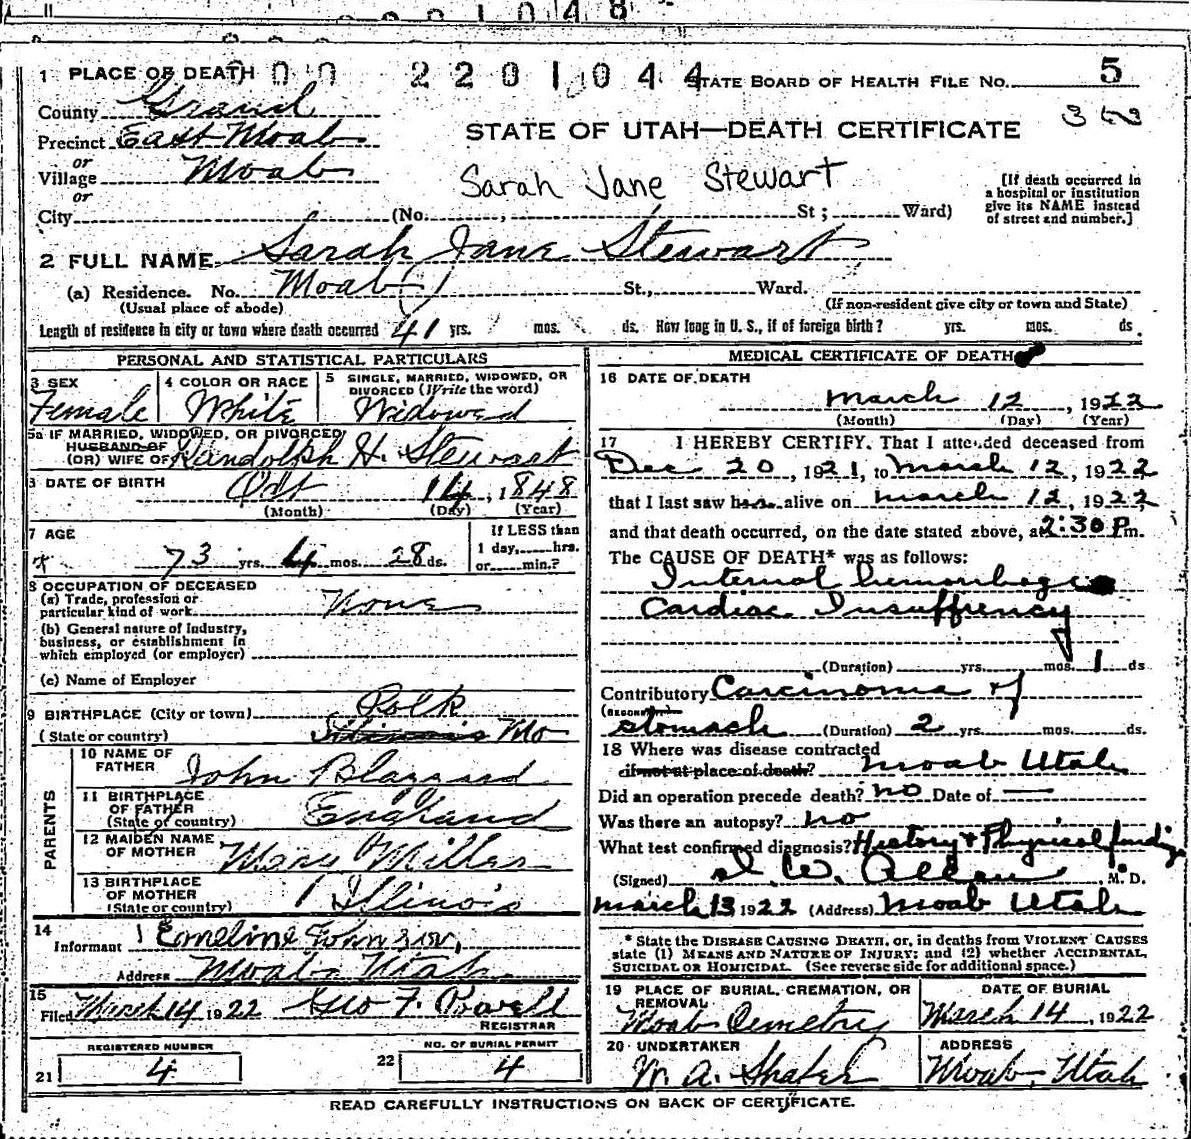 2201048
000 2201044
1 PLACE OF DEATH STATE BOARD OF HEALTH FILE NO. 5
County Grand
Precinct East Moab STATE OF UTAH—DEATH CERTIFICATE
or
Village Moab Sarah Jane Stewart
or
City (No. , St ; Ward)
[If death occurred in
a hospital or institution
give its NAME instead
of street and number.]
2 FULL NAME Sarah Jane Stewart
(a) Residence. No. Moab St., Ward.
(Usual place of abode) (If non-resident give city or town and State)
Length of residence in city or town where death occurred 41 yrs. mos. ds. How long in U. S., if of foreign birth? yrs. mos. ds.
PERSONAL AND STATISTICAL PARTICULARS
3 SEX 4 COLOR OR RACE 5 SINGLE, MARRIED, WIDOWED, OR
DIVORCED (Write the word)
Female White Widowed
5a IF MARRIED, WIDOWED, OR DIVORCED
HUSBAND OF
(OR) WIFE OF Randolph H. Stewart
DATE OF BIRTH Oct 14, 1848
(Month) (Day) (Year)
7 AGE If LESS than
73 yrs. 4 mos. 28 ds. 1 day, hrs.
or min.?
8 OCCUPATION OF DECEASED
(a) Trade, profession or
particular kind of work None
(b) General nature of industry,
business, or establishment in
which employed (or employer)
(c) Name of Employer
9 BIRTHPLACE (City or town) Polk
(State or country) Illinois Mo
PARENTS
10 NAME OF
FATHER John Blazzard
11 BIRTHPLACE
OF FATHER
(State or country) England
12 MAIDEN NAME
OF MOTHER Mary Miller
13 BIRTHPLACE
OF MOTHER
(State or country) Illinois
14
Informant Emeline Johnson,
Address Moab Utah
15
Filed March 14 1922 Geo F. Powell
REGISTRAR
REGISTERED NUMBER NO. OF BURIAL PERMIT
21 4 22 4
MEDICAL CERTIFICATE OF DEATH
16 DATE OF DEATH
March 12, 1922
(Month) (Day) (Year)
17 I HEREBY CERTIFY, That I attended deceased from
Dec 20, 1921, to March 12, 1922
that I last saw her alive on March 12, 1922,
and that death occurred, on the date stated above, at 2:30 Pm.
The CAUSE OF DEATH* was as follows:
Internal hemorrhage
Cardiac Insuffiency
(Duration) yrs. mos. 1 ds
Contributory Carcinoma of
(SECONDARY)
stomach (Duration) 2 yrs. mos. ds.
18 Where was disease contracted
if not at place of death? Moab Utah
Did an operation precede death? no Date of —
Was there an autopsy? no
What test confirmed diagnosis? History & Physical findings
(Signed) I. W. Allen M. D.
March 13 1922 (Address) Moab Utah
* State the DISEASE CAUSING DEATH, or, in deaths from VIOLENT CAUSES
state (1) MEANS AND NATURE OF INJURY; and (2) whether ACCIDENTAL,
SUICIDAL OR HOMICIDAL. (See reverse side for additional space.)
19 PLACE OF BURIAL, CREMATION, OR
REMOVAL DATE OF BURIAL
Moab Cemetry March 14, 1922
20 UNDERTAKER ADDRESS
W. A. Shafer Moab, Utah
READ CAREFULLY INSTRUCTIONS ON BACK OF CERTIFICATE.